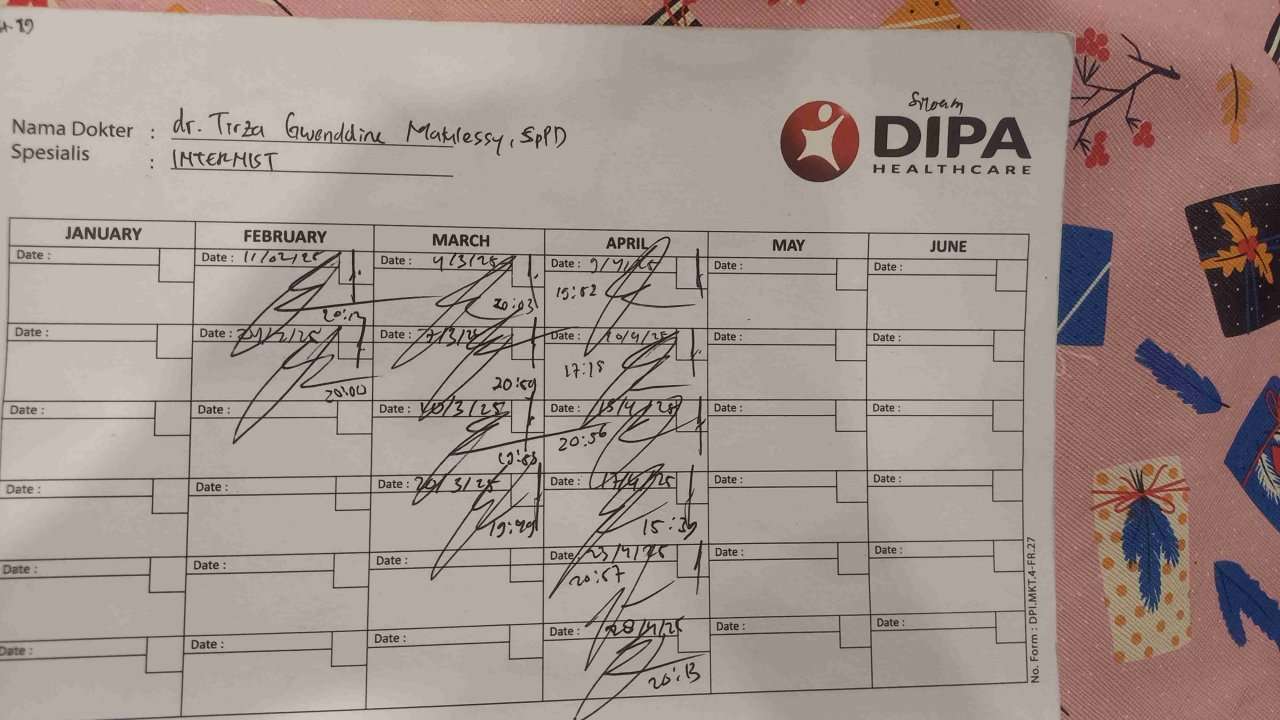 Nama Dokter : dr. Tirza Gwenddine Matulessy, SpPD
Spesialis : INTERNIST
DIPA
HEALTHCARE
JANUARY FEBRUARY MARCH APRIL MAY JUNE
Date : Date : 11/02/25 Date : 4/3/25 Date : 9/4/25 Date : Date :
20:03 19:52
Date : Date : Date : 7/3/25 Date : 10/4/25 Date : Date :
20:00 20:59 17:18
Date : Date : Date : 10/3/25 Date : 15/4/25 Date : Date :
19:53 20:56
Date : Date : Date : 20/3/25 Date : 17/4/25 Date : Date :
19:49 15:39
Date : Date : Date : Date : 23/4/25 Date : Date :
20:57
Date : Date : Date : Date : 28/4/25 Date : Date :
20:13
No. Form : DPI.MKT.4-FR.27